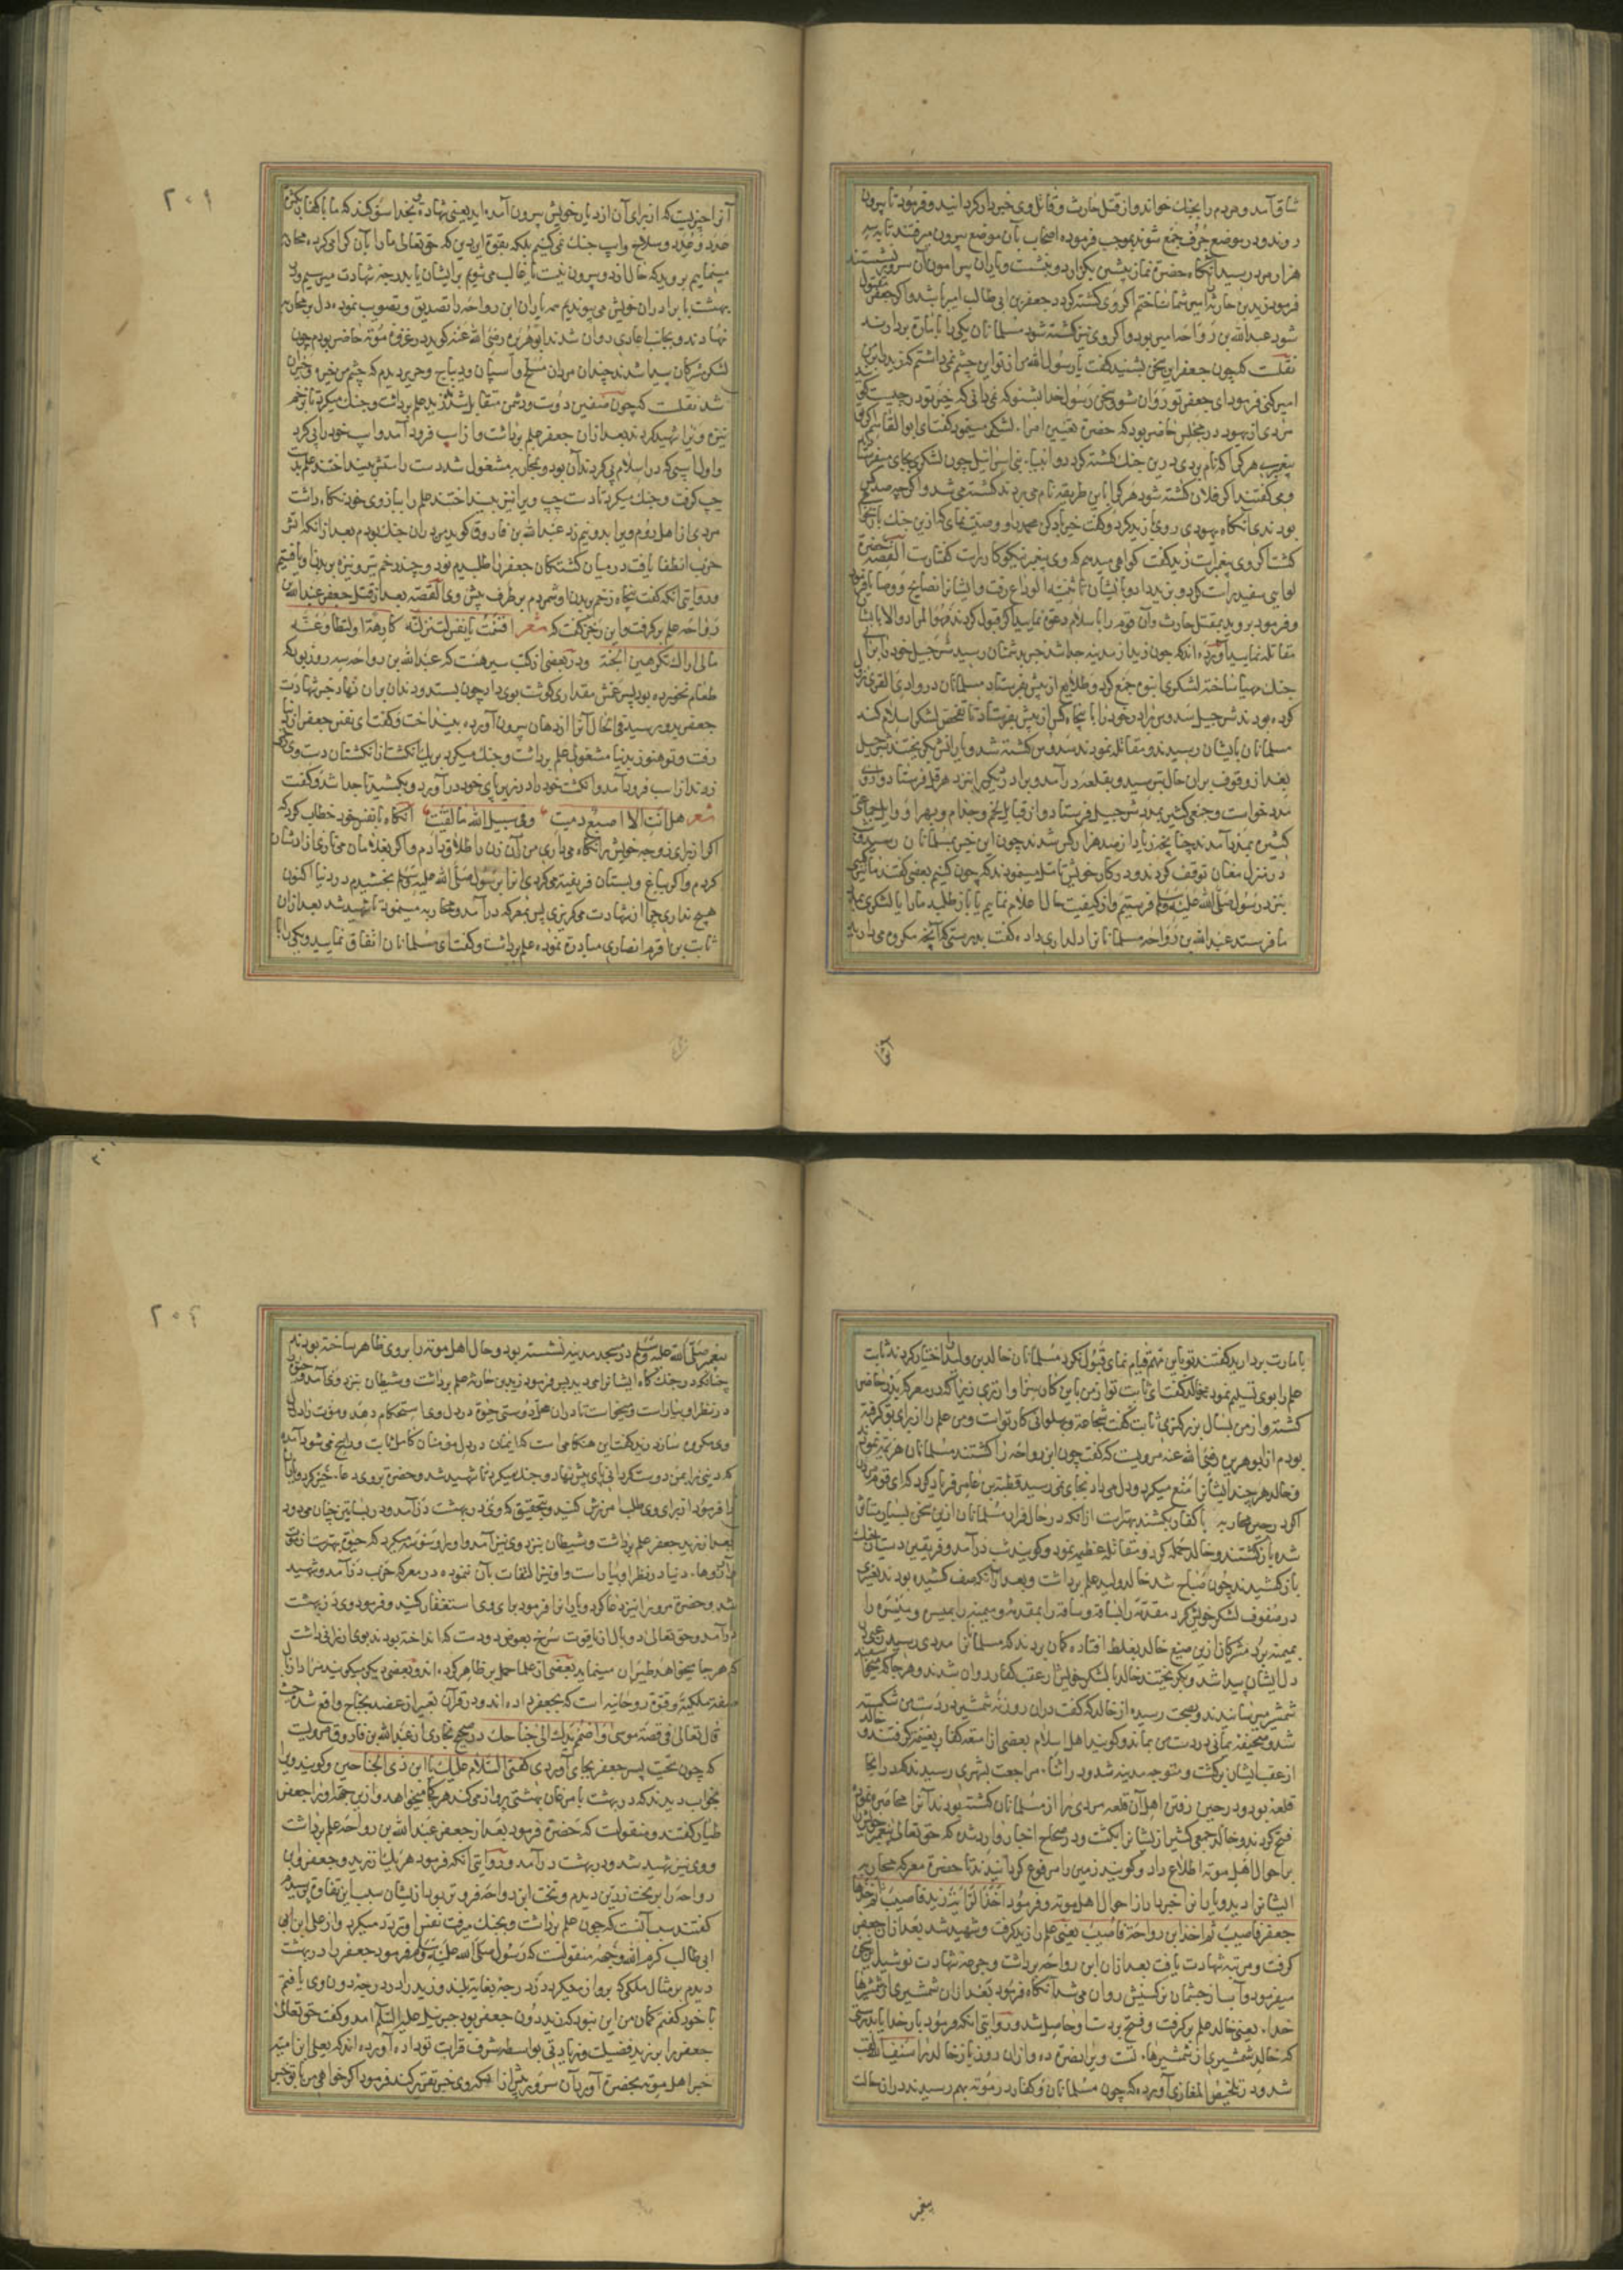 شاق آمد و مردم را بجنك خواند و از قتل حارث و قاتل وی خبردار كردانید و فرمود تا بیرون
روند و در موضع جرف جمع شوند بموجب فرموده اصحاب بآن موضع بیرون میرفتند تا به سه
هزار مرد رسید آنكاه حضرت نماز پیشین بكزارد و بنشست و یاران پیرامون آن سرور بنشستند
فرمود زید بن حارثه امیر شما ساختم اكر وی كشته كردد جعفر بن ابی طالب امیر باشد و اكر جعفر مقتول
شود عبدالله بن رواحه امیر بود و اكر وی نیز كشته شود مسلمانان یكی را بامارت بردارند
نقلست كه چون جعفر این سخن بشنید كفت یا رسول الله من از تو این چشم نمی داشتم كه زید را بر من
امیر كنی فرمود ای جعفر تو روان شو و سخن رسول خدا بشنو كه نمی دانی كه خیر تو در چیست كویند
مردی از یهود در مجلس حاضر بود كه حضرت تعیین امرا لشكر مینمود كفت ای ابوالقاسم اكر تو
پیغمبری هر كرا كه نام بردی درین جنك كشته كردد و انبیاء بنی اسرائیل چون لشكری بجای میفرستادند
و می كفتند اكر فلان كشته شود هر كرا باین طریقه نام می بردند كشته می شد و اكر چه صد كس
بودندی آنكاه یهودی روی بزید كرد و كفت خیرباد كن محمد را و وصیت نمای كه ازین جنك باز نخواهی
كشت اكر وی پیغمبر است زید كفت كواهی میدهم كه وی پیغمبر نیكوكار راست كفتار است القصه حضرت
لوایی سفید راست كرد و بزید داد و با ایشان تا ثنیة الوداع رفت و ایشانرا نصایح و وصایا فرمود
و فرمود بروید بمقتل حارث و آن قوم را باسلام دعوت نمایید اكر قبول كردند فهو المراد و الا با ایشان
مقاتله نمایید آورده اند كه چون زید از مدینه جدا شد خبر بدشمنان رسید شرحبیل خود را برای
جنك مهیا ساخته لشكری انبوه جمع كرد و طلایه از پیش فرستاد مسلمانان در وادی القری نزول
كرده بودند شرحبیل سدوس برادر خود را با پنجاه كس از پیش بفرستاد تا تفحص لشكر اسلام كند
مسلمانان بایشان رسیدند و مقاتله نمودند سدوس كشته شد و یارانش بكریختند شرحبیل
بعد از وقوف بران حال بترسید و بقلعه درآمد و برادر دیكر را بنزد هرقل فرستاد و ازوی
مدد خواست و جمعی كثیر بمدد شرحبیل فرستاد و از قبایل لخم و جذام و بهرا و وایل جماعتی
كثیر بمدد آمدند چنانچه زیاده از صد هزار كس شدند چون این خبر بمسلمانان رسید
در منزل معان توقف كردند و در كار خویش تامل مینمودند كه چون كنیم بعضی كفتند ما كسی
بنزد رسول صلی الله علیه وسلم فرستیم و از كیفیت حال اعلام نماییم یا باز طلبد ما را یا لشكری بمدد
ما فرستد عبدالله بن رواحه مسلمانانرا دلداری داده كفت بدرستی كه آنچه مكروه می دارید
آنرا
٢٠١
آنرا چیزیست كه از برای آن از دیار خویش بیرون آمده اید یعنی شهادت بخدا سوكند كه ما با كفار بكثرت
عدد و عدد و سلاح و اسپ جنك نمی كنیم بلكه بقوت این دین كه حق تعالی ما را بآن كرامی كرده محاربه
مینماییم بروید كه حال از دو بیرون نیست یا غالب می شویم برایشان یا بدرجه شهادت میرسیم و در
بهشت با برادران خویش می پیوندیم همه یاران ابن رواحه را تصدیق و تصویب نموده دل بر محاربه
نهادند و بجانب اعادی روان شدند ابوهریره رضی الله عنه كوید در غزوه موته حاضر بودم چون
لشكر مشركان پیدا شدند چندان مردان مسلح و اسپان و دیباج و حریر دیدم كه چشم من خیره و حیران
شد نقلست كه چون صفین دوست و دشمن متقابل شد زید علم برداشت و جنك میكرد تا بزخم
نیزه ویرا شهید كردند بعد ازان جعفر علم برداشت و از اسپ فرود آمد و اسپ خود را پی كرد
و اول اسپی كه در اسلام پی كردند آن بود و بمحاربه مشغول شد دست راستش بینداختند علم بدست
چپ كرفت و جنك میكرد تا دست چپ ویرا نیز بینداختند علم را ببازوی خود نكاه داشت
مردی از اهل روم ویرا بدو نیم زد عبدالله بن فاروق كوید من دران جنك بودم بعد از آنكه آتش
حرب انطفا یافت در میان كشتكان جعفر را طلبیدیم نود و چند زخم تیر و نیزه بر بدن او یافتیم
و روایتی آنكه كفت پنجاه زخم بر بدن او شمردم بر طرف پیش وی القصه بعد از قتل جعفر عبدالله بن
رواحه علم بركرفت و این رجز كفت كه شعر اقسمت یا نفس لتنزلنه كارهة او لتطاوعنه
مالی اراك تكرهین الجنه و در بعضی از كتب سیر هست كه عبدالله بن رواحه سه روز بود كه
طعام نخورده بود پسر عمش مقداری كوشت بوی داد چون بستد و دندان بران نهاد خبر شهادت
جعفر بدو رسید فی الحال آنرا از دهان بیرون آورده بینداخت و كفت ای نفس جعفر از دنیا
رفت و تو هنوز بدنیا مشغولی علم برداشت و جنك میكرد بر یك انكشت از انكشتان دست وی زخمی
زدند از اسب فرود آمد و انكشت خود را در زیر پای خود درآورد و بكشید تا جدا شد و كفت
شعر هل انت الا اصبع دمیت وفی سبیل الله ما لقیت آنكاه با نفس خود خطاب كرد كه
اكر از برای زوجه خویش نكاه می داری من آن زن را طلاق دادم و اكر بغلامان می نازی آزاد شان
كردم و اكر بباغ و بستان فریفته می كردی آنرا برسول صلی الله علیه وسلم بخشیدم در دنیا اكنون
هیچ نداری چرا از شهادت می كریزی پس بمعركه درآمد و محاربه مینمود تا شهید شد بعد ازان
ثابت بن اقرم انصاری مبادرت نموده علم برداشت و كفت ای مسلمانان اتفاق نمایید و یكی را
بامارت بردارید كفتند تو باین مهم قیام نمای قبول نكرد مسلمانان خالد بن ولید را اختیار كردند ثابت
علم را بوی تسلیم نمود خالد كفت ای ثابت تو از من باین كار سزاوارتری زیرا كه در معركه بدر حاضر
كشته و از من بسال بزركتری ثابت كفت شجاعت و پهلوانی كار تو است و من علم را از برای تو كرفته
بودم از ابوهریره رضی الله عنه مرویست كه كفت چون ابن رواحه را كشتند مسلمانان هزیمت نمودند
و خالد هر چند ایشانرا منع میكرد و دل می داد بجای نمی رسید قطبة بن عامر فریاد كرد كه ای قوم مردن
آكرد در حین محاربه با كفار بكشند بهتر است از آنكه در حال فرار مسلمانان ازین سخن بسیار متاثر
شده بازكشتند و خالد حمله كرد و مقاتله عظیم نمود و كویند شب درآمد و فریقین دست از جنك
بازكشیدند چون صباح شد خالد ولید علم برداشت و بعد از آنكه صف كشیده بودند تغییری
در صفوف لشكر خویش كرد مقدمه را بساقه و ساقه را بمقدمه و میمنه را بمیسره و میسره را
بمیمنه برد مشركان ازین صنع خالد بغلط افتاده كمان بردند كه مسلمانانرا مددی رسید رعبی در
دل ایشان پیدا شد و بكریختند خالد با لشكر خویش از عقب كفار روان شدند و هر جا كه میخواستند
شمشیر میزدند و بصحت رسیده از خالد كه كفت دران روز نه شمشیر در دست من شكسته
شد و صحیفه یمانی در دست من بماند و كویند اهل اسلام بعضی از امتعه كفار بغنیمت كرفتند و خالد
از عقب ایشان بركشت و متوجه مدینه شد و در اثناء مراجعت بشهری رسیدند كه در آنجا
قلعه بود و در حین رفتن اهل آن قلعه مردی را از مسلمانان كشته بودند آنرا محاصره نموده
فتح كردند و خالد جمعی كثیر از ایشانرا بكشت و در صحاح اخبار وارد شد كه حق تعالی پیغمبر خویش را
بر احوال اهل موته اطلاع داد و كویند زمین را مرفوع كردانیدند تا حضرت معركه محاربه
ایشانرا دید و یارانرا خبردار از احوال اهل موته و فرمود اخذ الرایة زید فاصیب ثم اخذها
جعفر فاصیب ثم اخذ ابن رواحة فاصیب یعنی علم را زید كرفت و شهید شد بعد ازان جعفر
كرفت و مرتبه شهادت یافت بعد ازان ابن رواحه برداشت و جرعه شهادت نوشید این سخن
میفرمود و آب از چشمان نركسیش روان می شد آنكاه فرمود بعد ازان شمشیری از شمشیرها
خدا یعنی خالد علم بركرفت و فتح بر دست او حاصل شد و روایتی آنكه فرمود بار خدایا بدرستی
كه خالد شمشیری از شمشیرهاء تست ویرا نصرت ده و ازان روز باز خالد را سیف الله لقب
شد و در تلخیص المغازی آورده كه چون مسلمانان و كفار در موته بهم رسیدند دران حالت
پیغمبر
٢٠٢
پیغمبر صلی الله علیه وسلم در مسجد مدینه نشسته بود و حال اهل موته را بر وی ظاهر ساخته بودند
چنانكه در جنك كاه ایشانرا می دید پس فرمود زید بن حارثه علم برداشت و شیطان بنزد وی آمد و حیوة
در نظر او بیاراست و میخواست تا دران محل دوستی حیوة در دل وی استحكام دهد و موت را در دل
وی مكروه سازد زید كفت این هنكامی است كه ایمان در دل مومنان كامل ثابت و راسخ می شود آمده
كه دنیی را بمن دوست كردانی پای پیش نهاد و جنك میكرد تا شهید شد و حضرت بر وی دعاء خیر كرد و یارانرا
فرمود از برای وی طلب آمرزش كنید و بتحقیق كه وی در بهشت درآمد و در بساتین جنان می دود
بعد از زید جعفر علم برداشت و شیطان بنزد وی نیز آمد و او را وسوسه میكرد كه حیوة بهتر است از موت
و آرزوهاء دنیا در نظر او بیاراست و او نیز التفات بآن ننموده در معركه حرب درآمد و شهید
شد و حضرت مر ویرا نیز دعا كرد و یارانرا فرمود برای وی استغفار كنید و فرمود وی در بهشت
درآمد و حق تعالی دو بال از یاقوت سرخ بعوض دو دست كه انداخته بودند بوی ارزانی داشت
كه هر جا میخواهد طیران مینماید بعضی از علما حمل بر ظاهر كرده اند و بعضی دیكر میكویند مراد ازان
صفة ملكیه و قوت روحانیه است كه بجعفر داده اند و در قرآن تعبیر از عضد بجناح واقع شده حیث
قال تعالی فی قصة موسی واضمم یدك الی جناحك در صحیح بخاری از عبدالله بن فاروق مرویست
كه چون تحیت پسر جعفر بجای آوردی كفتی السلام علیك یا ابن ذی الجناحین و كویند ویرا
بخواب دیدند كه در بهشت با مرغان بهشتی پرواز می كند هر كجا میخواهد و ازین جهت او را جعفر
طیار كفتند و منقولست كه حضرت فرمود بعد از جعفر عبدالله بن رواحه علم برداشت
و وی نیز شهید شد و در بهشت درآمد و روایتی آنكه فرمود هر یك از زید و جعفر و ابن
رواحه را بر تخت زرین دیدم و تخت ابن رواحه فروتر بود از ایشان سبب این تفاوت پرسیدم
كفتند سبب آنست كه چون علم برداشت و بجنك میرفت نفس او تردد میكرد و از علی ابن ابی
ابی طالب كرم الله وجهه منقولست كه رسول صلی الله علیه وسلم فرمود جعفر را در بهشت
دیدم بر مثال ملكی كه پرواز میكرد و درجه بغایت بلند و زید را در درجه دون وی یافتم
با خود كفتم كمان من این نبود كه زید دون جعفر بود جبرئیل علیه السلام آمد و كفت حق تعالی
جعفر را بر زید فضیلت و زیادتی بواسطه شرف قرابت تو داده آورده اند كه یعلی ابن امیه
خبر اهل موته بحضرت آورد آن سرور پیش از آنكه وی خبر تقریر كند فرمود اكر خواهی من با تو خبر